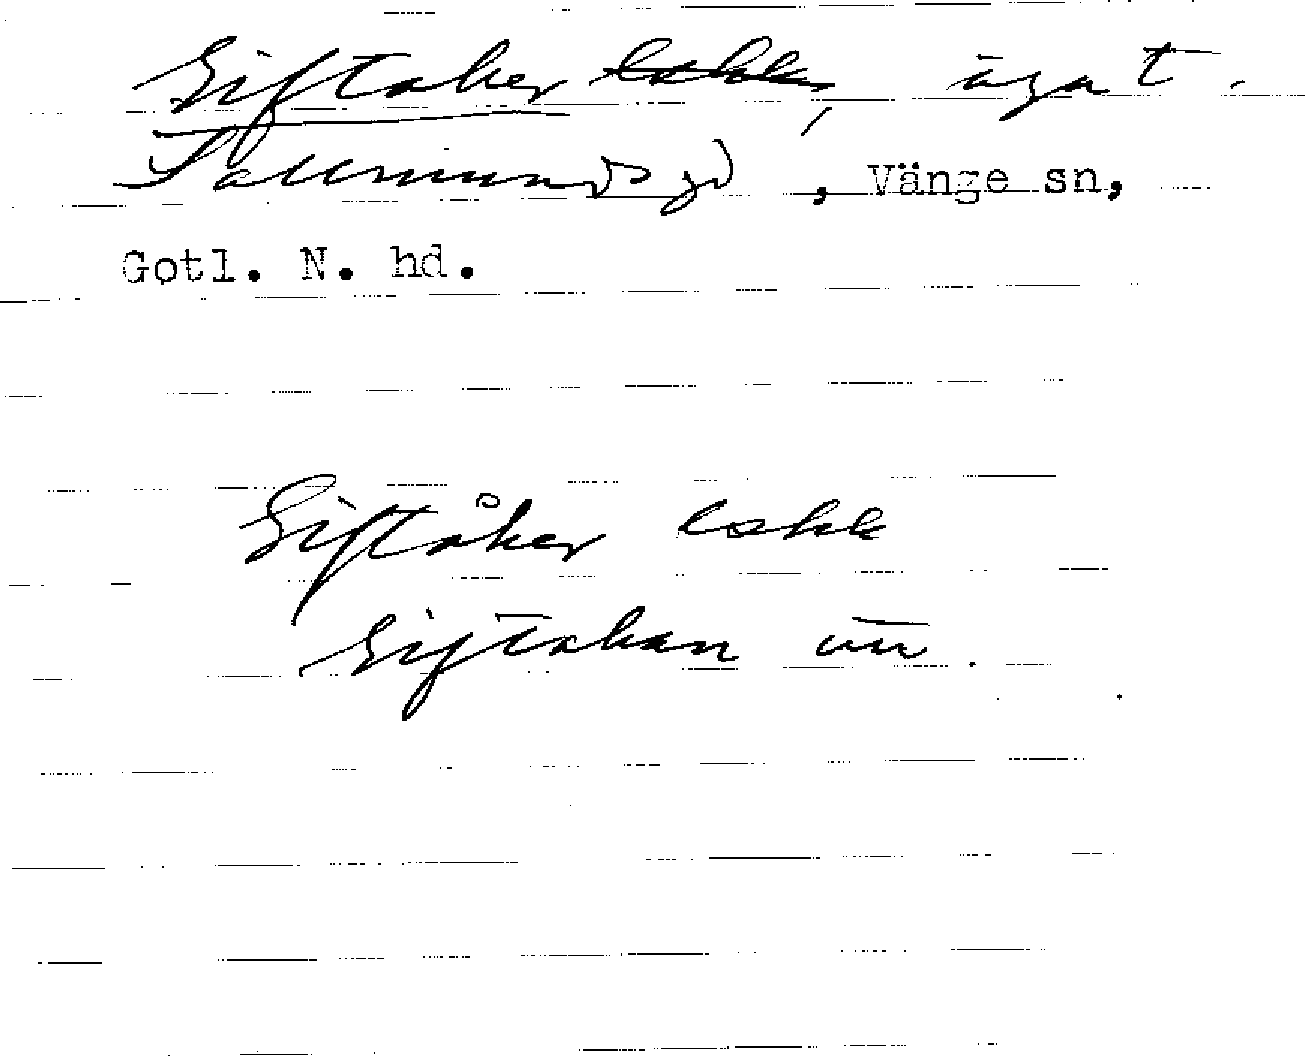 Giftaker lokk, ägat.
Tallmunds gd, Vänge sn,
Gotl. N. hd.
Giftåker lokk
Giftakan